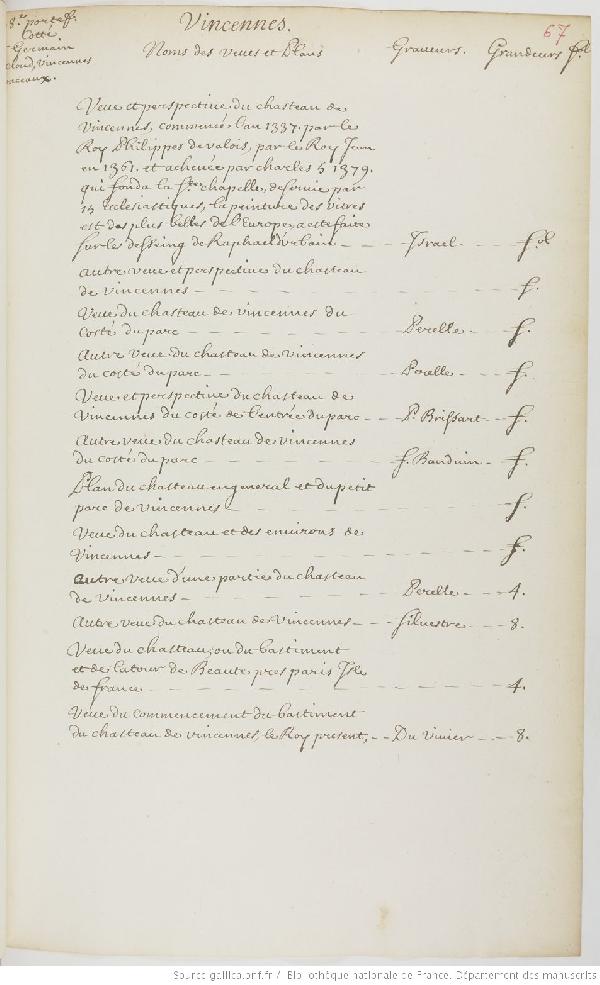 8.e portef.
Cotté.
Germain
Cloud, Vincennes
meaux.
Vincennes.
67
Noms des veues et Plans Graveurs. Grandeurs
Veue et perspective du chasteau de
Vincennes, commencé l'an 1337. par le
Roy Philippes de valois, par le Roy Jean
en 1361. et achevée par charles 5 1379.
qui fonda la Ste chapelle, desservie par
15 Ecclesiastiques, la peinture des vitres
est des plus belles de l'Europe, a esté faite
sur les desseing de Raphael d'Urbain - - Israel - - - f.
Autre veue et perspective du chasteau
de vincennes - - - - f.
Veue du chasteau de vincennes du
costé du parc - - - - Perelle - - f.
Autre veue du chasteau de vincennes
du costé du parc - - - - Perelle - - f.
Veue et perspective du chasteau de
Vincennes du costé de l'entrée du parc - - P. Brissart - - f.
Autre veue du chasteau de vincennes
du costé du parc - - - - f. Bauduin - - f.
Plan du chasteau en general et du petit
parc de vincennes - - - - f.
Veue du chasteau et des environs de
Vincennes - - - - f.
Autre veue d'une partie du chasteau
de vincennes - - - - Perelle - - 4.
Autre veue du chasteau de vincennes - - Silvestre - - 8.
Veue du chasteau, ou du bastiment
et de la tour de Beauté pres paris Isle
de france - - - - 4.
Veue du commencement du bastiment
du chasteau de vincennes, le Roy present, - - Du Vivier - - 8.
Source gallica.bnf.fr / Bibliothèque nationale de France. Département des manuscrits